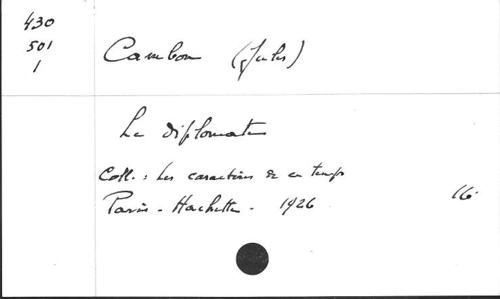 430
501
1
Cambon (Jules)
Le diplomate
Coll. : Les caractères de ce temps
Paris - Hachette - 1926 16°